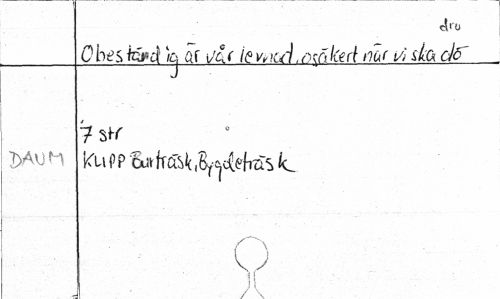 dru
Obeständig är vår levnad, osäkert när vi ska dö
7 str
DAUM KLIPP Burträsk, Bygdeträsk